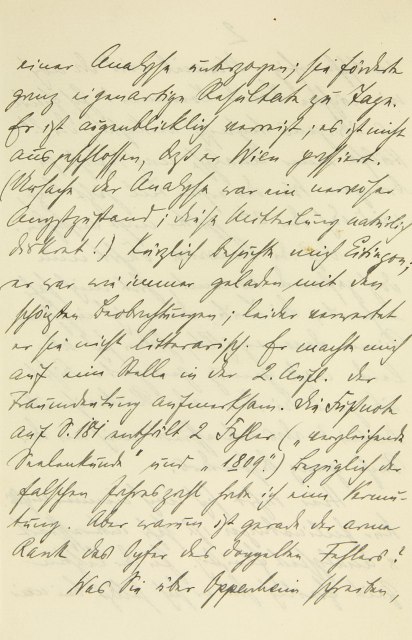 einer Analyse unterzogen; sie förderte
ganz eigenartige Resultate zu Tage.
Er ist augenblicklich verreist; es ist nicht
ausgeschlossen, daß er Wien passiert.
(Ursache der Analyse war ein nervöser
Angstzustand; diese Mitteilung natürlich
diskret!) Kürzlich besuchte mich Eitingon;
er war wie immer geladen mit den
schönsten Beobachtungen; leider verwertet
er sie nicht litterarisch. Er machte mich
auf eine Stelle in der 2. Aufl. der
Traumdeutung aufmerksam. Die Fußnote
auf S. 181 enthält 2 Fehler („vergleichende
Seelenkunde“ und „1809“.) Bezüglich der
falschen Jahreszahl habe ich eine Vermu-
tung. Aber warum ist gerade der arme
Rank das Opfer des doppelten Fehlers?
Was Sie über Oppenheim schreiben,